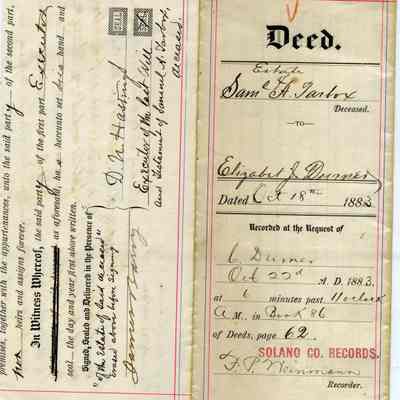 premises, together with the appurtenances, unto the said party of the second part,
her heirs and assigns forever.
In Witness Whereof, the said party of the first part Executed
as aforesaid, has hereunto set his hand and
seal the day and year first above written.
Signed, Sealed and Delivered in the Presence of
"of the estate of said deceased"
erased above before signing
James
D. N. Hastings
Executor of the Last Will
and Testament of Samuel H. Tarbox,
deceased.
SEAL
SEAL
Deed.
Estate
Saml H. Tarbox
Deceased.
—TO—
Elizabet J. Durner
Dated Oct 18th 1883
Recorded at the Request of
C. Durner
Oct 22d A. D. 1883
at 6 minutes past 11 o'clock
A M., in Book 86
of Deeds, page 62
SOLANO CO. RECORDS.
F. P. Weinmann
Recorder.